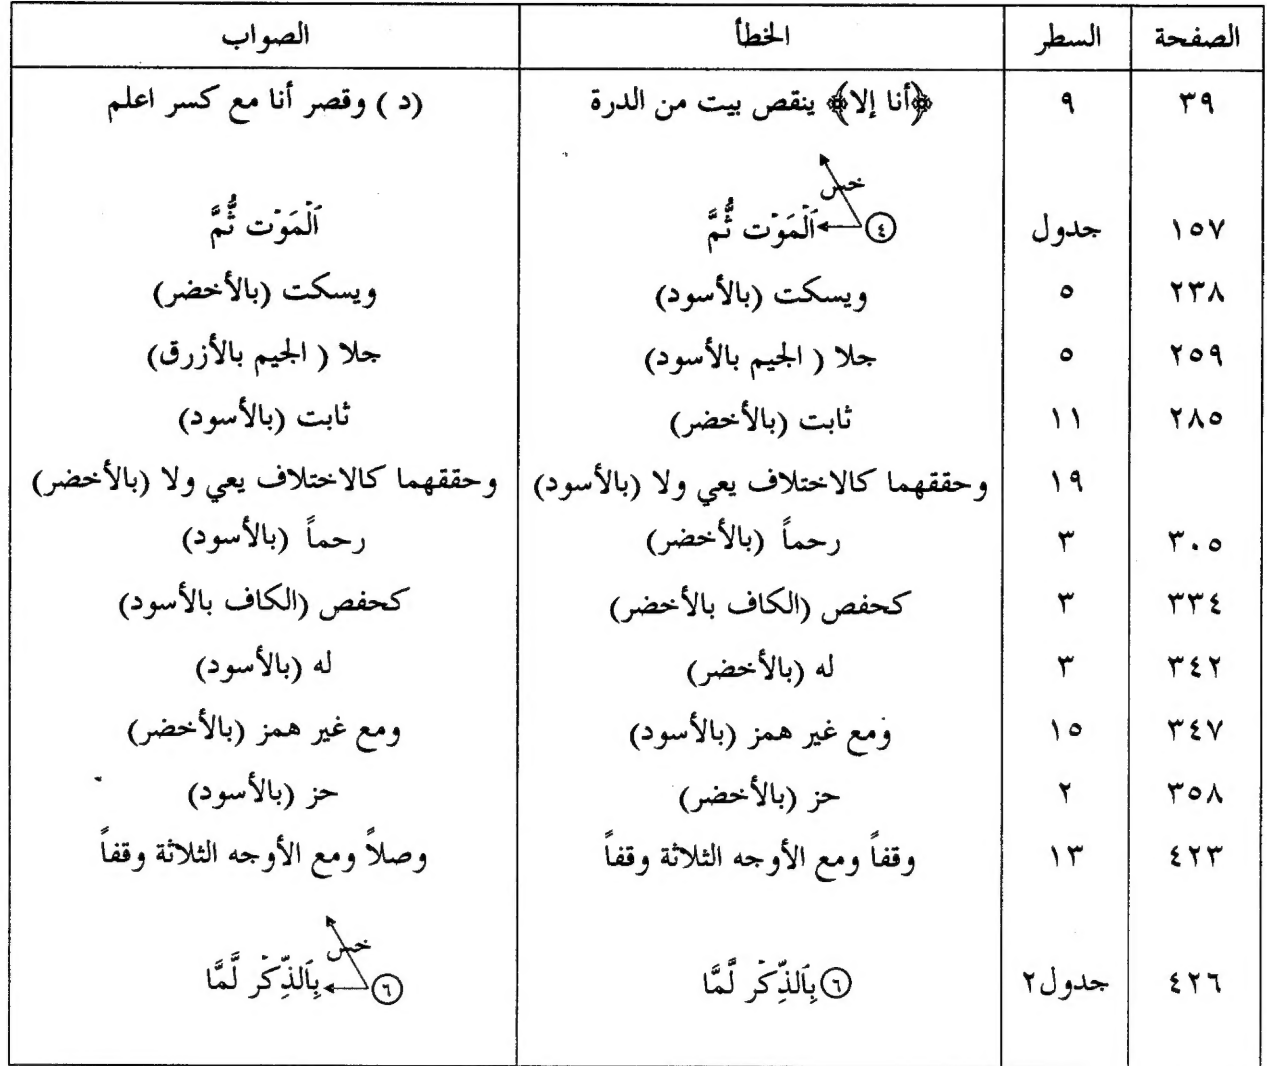 الصفحة السطر الخطأ الصواب
٣٩ ٩ ﴿أنا إلا﴾ ينقص بيت من الدرة (د ) وقصر أنا مع كسر اعلم
خس
١٥٧ جدول ٤ ٱلْمَوْت ثُّمَّ ٱلْمَوْت ثُّمَّ
٢٣٨ ٥ ويسكت (بالأسود) ويسكت (بالأخضر)
٢٥٩ ٥ جلا ( الجيم بالأسود) جلا ( الجيم بالأزرق)
٢٨٥ ١١ ثابت (بالأخضر) ثابت (بالأسود)
١٩ وحققهما كالاختلاف يعي ولا (بالأسود) وحققهما كالاختلاف يعي ولا (بالأخضر)
٣٠٥ ٣ رحماً (بالأخضر) رحماً (بالأسود)
٣٣٤ ٣ كحفص (الكاف بالأخضر) كحفص (الكاف بالأسود)
٣٤٢ ٣ له (بالأخضر) له (بالأسود)
٣٤٧ ١٥ ومع غير همز (بالأسود) ومع غير همز (بالأخضر)
٣٥٨ ٢ حز (بالأخضر) حز (بالأسود)
٤٢٣ ١٣ وقفاً ومع الأوجه الثلاثة وقفاً وصلاً ومع الأوجه الثلاثة وقفاً
خس
٤٢٦ جدول٢ ٦ بِٱلذِّكْر لَّمَّا ٦ بِٱلذِّكْر لَّمَّا